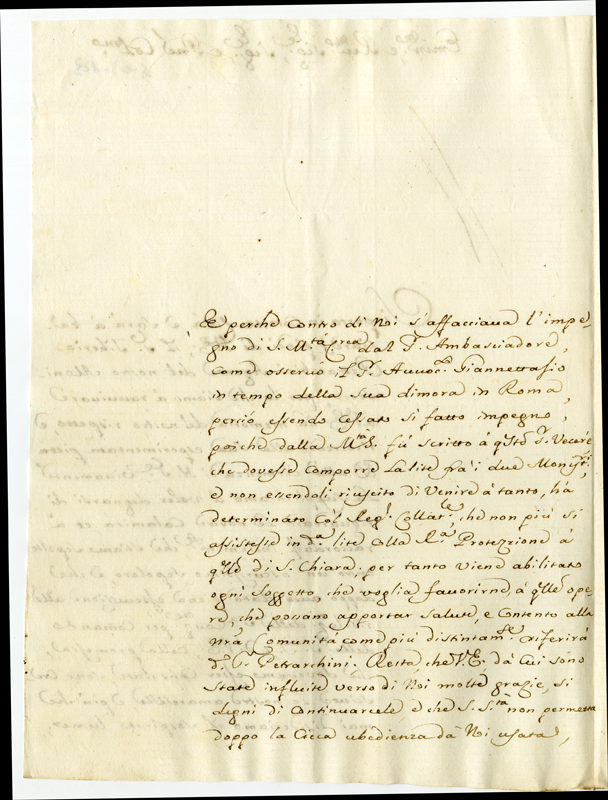 E perche contro di Noi s'affacciaua l'impe-
gno di S. M.tà Crea dal S.r Ambasciadore,
come osseruò il S.r Auuoc.to Giannettasio
in tempo della sua dimora in Roma,
perciò essendo cessato si fatto impegno,
poiche dalla M.tà S. fù scritto à q'sto S.r Vecerè
che douesse comporre la lite frà i due Mon.rij,
e non essendoli riuscito di venire à tanto, hà
determinato col Reg.l Collat.le, che non più si
assistesse in d.a lite colla R.a Protezzione à
q'llo di S. Chiara; per tanto viene abilitato
ogni Soggetto, che voglia fauorirne, à q'lle ope-
re, che possano apportar salute, e contento alla
nrã Comunità come più distintam.te riferirà
d.o S.r Petrarchini. Resta, che V. E. dà cui sono
state influite verso di Noi molte grazie, si
degni di continuarcele e che S. S.tà non permetta
doppo la cieca ubedienza dà Noi usata,